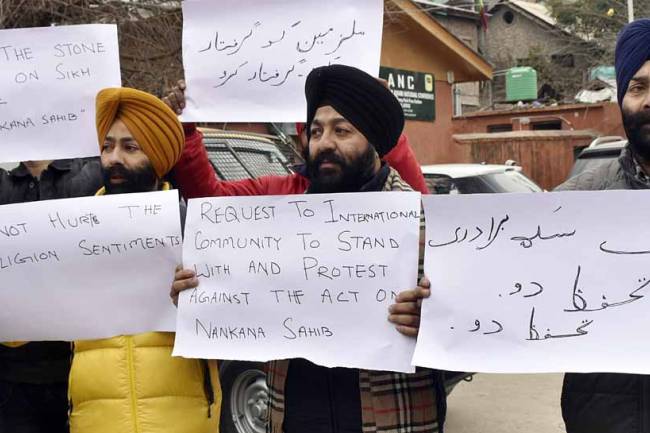 THE STONE
ON SIKH
NKANA SAHIB"
ملزمین کو گرفتار
گرفتار کرو
ANC
NOT HURT THE
LIGION SENTIMENTS
REQUEST TO INTERNATIONAL
COMMUNITY TO STAND
WITH AND PROTEST
AGAINST THE ACT ON
NANKANA SAHIB
سکھ برادری
تحفظ دو.
تحفظ دو.